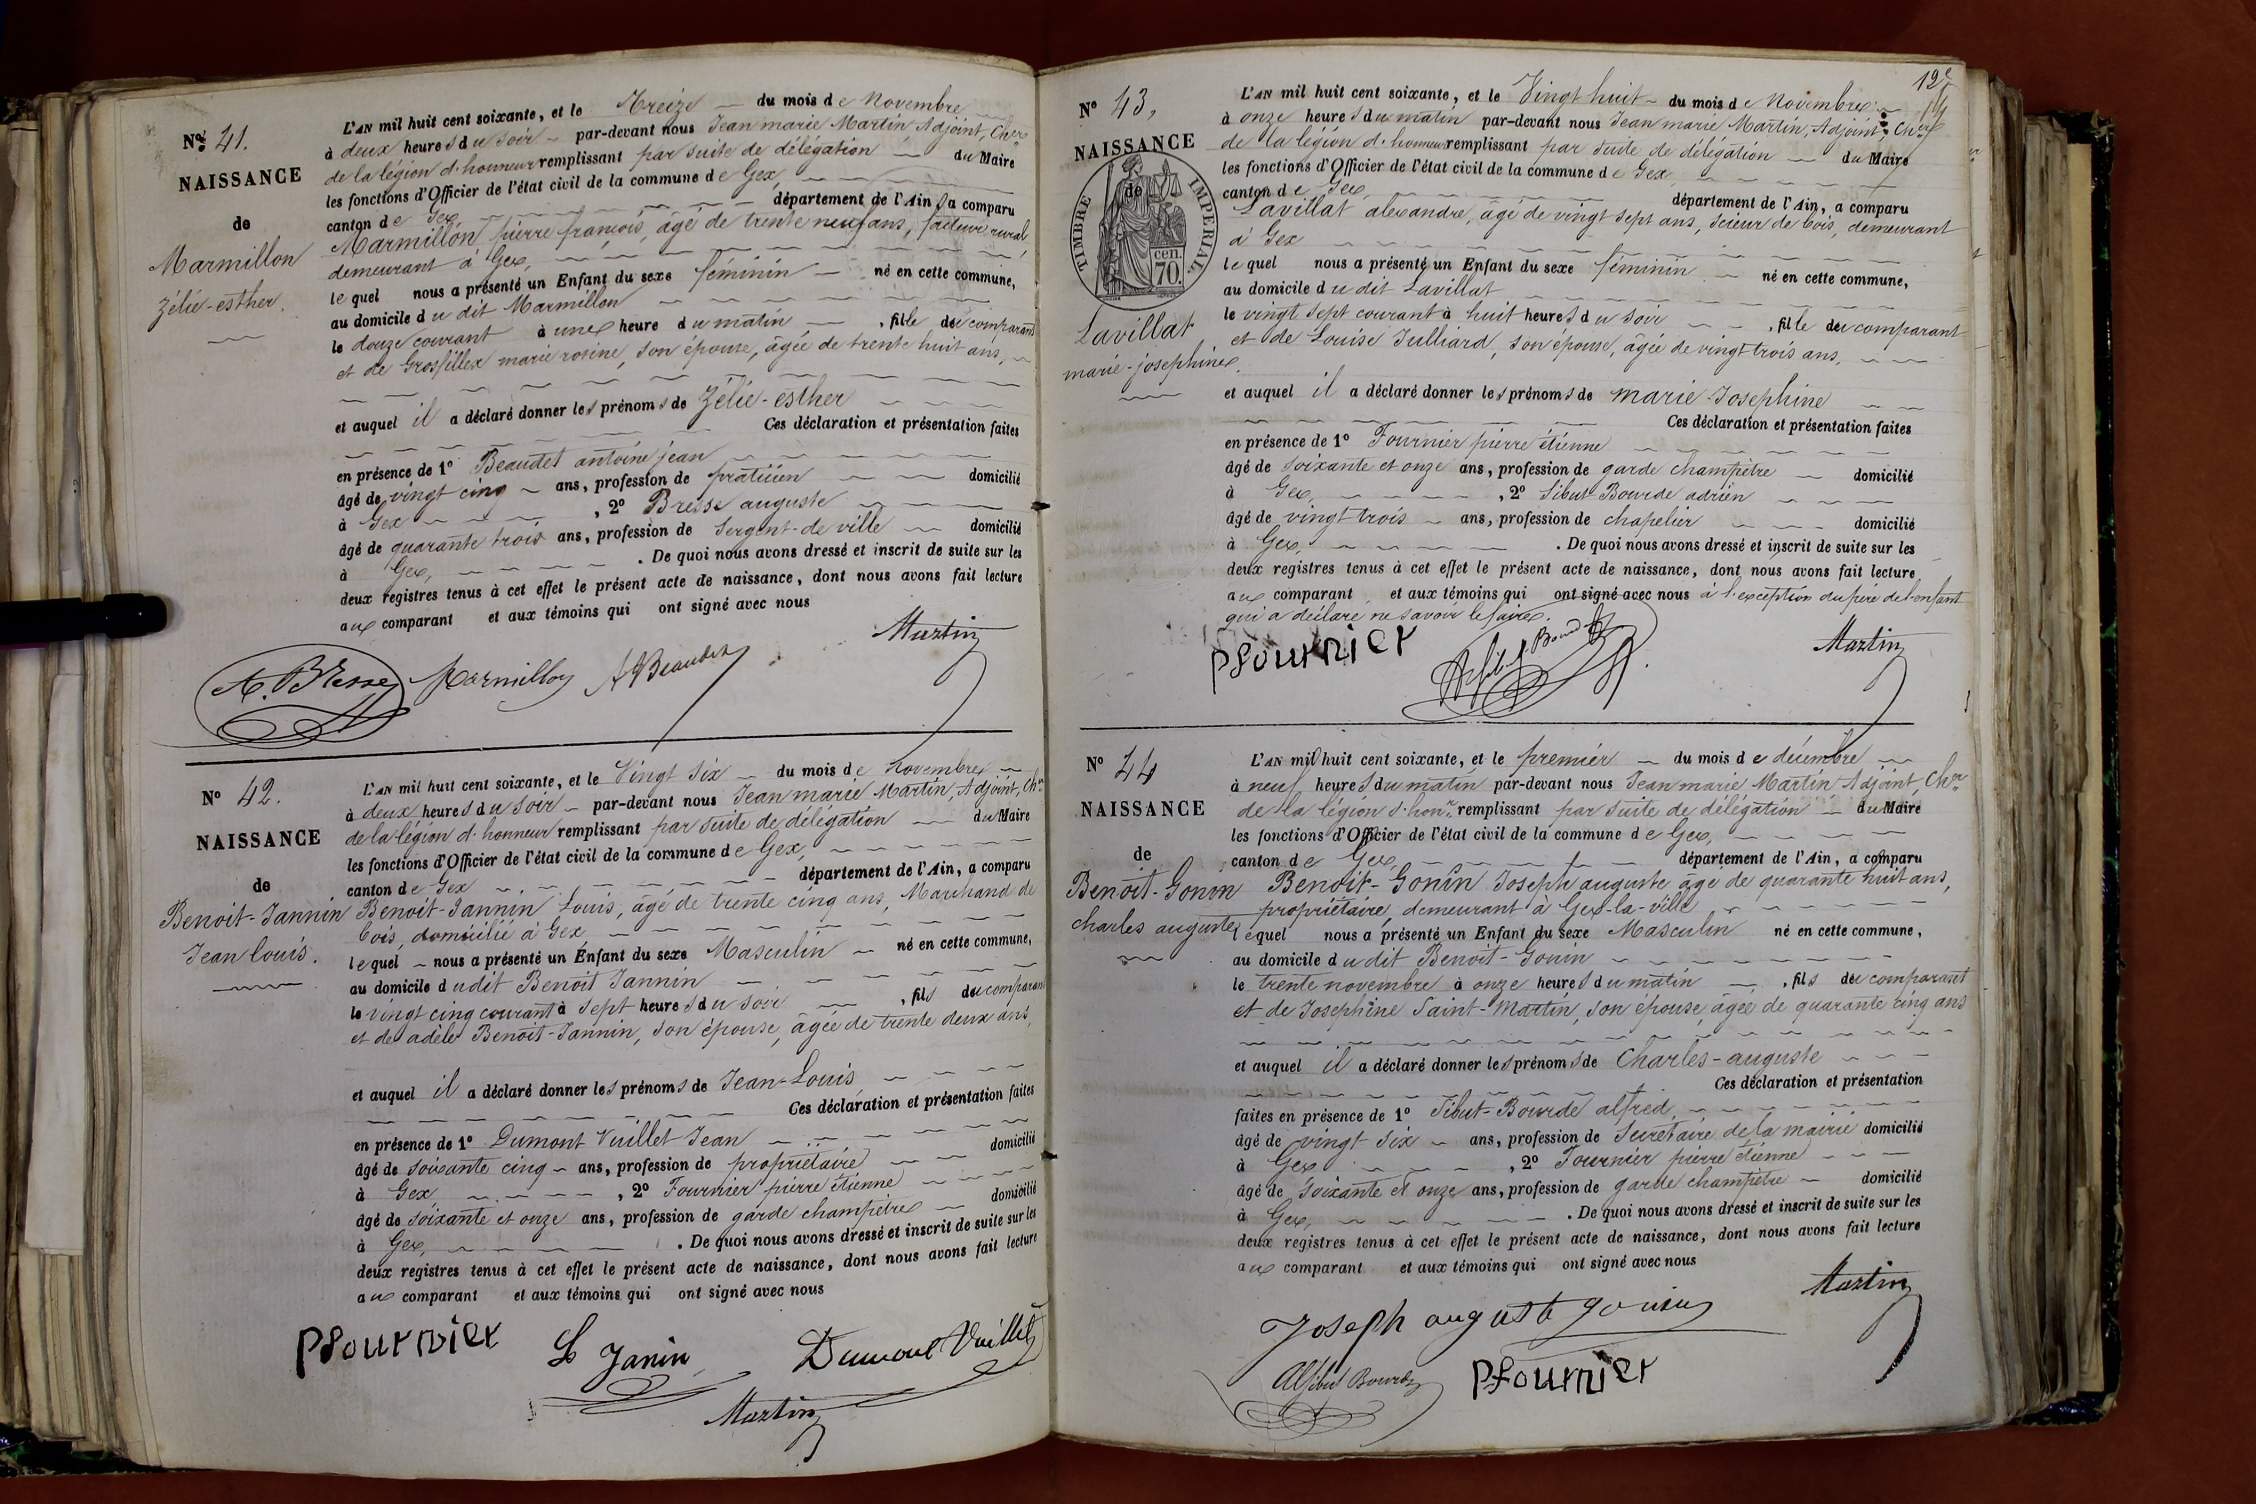 Nº 41.
NAISSANCE
de
Marmillon
Zélie-esther.
L'AN mil huit cent soixante, et le Treize du mois de Novembre
à deux heures du soir par-devant nous Jean marie Martin, Adjoint, Cher
de la légion d'honneur remplissant par suite de délégation du Maire
les fonctions d'Officier de l'état civil de la commune de Gex,
canton de Gex, département de l'Ain, a comparu
Marmillon pierre françois, âgé de trente neuf ans, facteur rural,
demeurant à Gex,
lequel nous a présenté un Enfant du sexe féminin né en cette commune,
au domicile du dit Marmillon
le douze courant à une heure du matin, fille du comparant
et de Grosfillex marie rosine, son épouse, âgée de trente huit ans,
et auquel il a déclaré donner les prénoms de Zélie-esther
Ces déclaration et présentation faites
en présence de 1º Beaudet antoine jean
âgé de vingt cinq ans, profession de praticien domicilié
à Gex, 2º Bresse auguste
âgé de quarante trois ans, profession de Sergent-de ville domicilié
à Gex, . De quoi nous avons dressé et inscrit de suite sur les
deux registres tenus à cet effet le présent acte de naissance, dont nous avons fait lecture
aux comparant et aux témoins qui ont signé avec nous
Martin
A. Bresse Marmillon Beaudet
Nº 42.
NAISSANCE
de
Benoit-Jannin
Jean louis.
L'AN mil huit cent soixante, et le Vingt six du mois de Novembre
à deux heures du soir par-devant nous Jean marie Martin, Adjoint, Cher
de la légion d'honneur remplissant par suite de délégation du Maire
les fonctions d'Officier de l'état civil de la commune de Gex,
canton de Gex département de l'Ain, a comparu
Benoit-Jannin Louis, âgé de trente cinq ans, Marchand de
bois, domicilié à Gex
lequel nous a présenté un Enfant du sexe Masculin né en cette commune,
au domicile dudit Benoit Jannin
le vingt cinq courant à sept heures du soir, fils du comparant
et de adèle Benoit-Jannin, son épouse, âgée de trente deux ans,
et auquel il a déclaré donner les prénoms de Jean-Louis
Ces déclaration et présentation faites
en présence de 1º Dumont Vuillet Jean
âgé de soixante cinq ans, profession de propriétaire domicilié
à Gex, 2º Fournier pierre étienne
âgé de soixante et onze ans, profession de garde champêtre domicilié
à Gex, . De quoi nous avons dressé et inscrit de suite sur les
deux registres tenus à cet effet le présent acte de naissance, dont nous avons fait lecture
aux comparant et aux témoins qui ont signé avec nous
pfournier L Janin Dumont Vuillet
Martin
12e
Nº 43,
NAISSANCE
de
TIMBRE IMPERIAL.
cen.
70.
Lavillat
marie-josephine.
L'AN mil huit cent soixante, et le Vingt huit du mois de Novembre
à onze heures du matin par-devant nous Jean marie Martin, Adjoint, Cher
de la légion d'honneur remplissant par suite de délégation du Maire
les fonctions d'Officier de l'état civil de la commune de Gex
canton de Gex, département de l'Ain, a comparu
Lavillat alexandre, âgé de vingt sept ans, scieur de bois, demeurant
à Gex
lequel nous a présenté un Enfant du sexe féminin né en cette commune,
au domicile du dit Lavillat
le vingt sept courant à huit heures du soir, fille du comparant
et de Louise Julliard, son épouse, âgée de vingt trois ans,
et auquel il a déclaré donner les prénoms de marie Josephine
Ces déclaration et présentation faites
en présence de 1º Fournier pierre étienne
âgé de soixante et onze ans, profession de garde champêtre domicilié
à Gex, 2º Sibut Bourde adrien
âgé de vingt trois ans, profession de chapelier domicilié
à Gex, . De quoi nous avons dressé et inscrit de suite sur les
deux registres tenus à cet effet le présent acte de naissance, dont nous avons fait lecture
aux comparant et aux témoins qui ont signé avec nous à l'exception du père de l'enfant
qui a déclaré ne savoir le faire.
pfournier Martin
Nº 44
NAISSANCE
de
Benoit-Gonin
charles auguste
L'AN mil huit cent soixante, et le premier du mois de décembre
à neuf heures du matin par-devant nous Jean marie Martin Adjoint, Cher
de la légion d'honr. remplissant par suite de délégation du Maire
les fonctions d'Officier de l'état civil de la commune de Gex,
canton de Gex, département de l'Ain, a comparu
Benoit-Gonin Joseph auguste âgé de quarante huit ans,
propriétaire, demeurant à Gex-la-ville
lequel nous a présenté un Enfant du sexe Masculin né en cette commune,
au domicile dudit Benoit-Gonin
le trente novembre à onze heures du matin, fils du comparant
et de Josephine Saint-Martin, son épouse, âgée de quarante cinq ans
et auquel il a déclaré donner les prénoms de Charles-auguste
Ces déclaration et présentation
faites en présence de 1º Sibut-Bourde alfred
âgé de vingt six ans, profession de Secrétaire de la mairie domicilié
à Gex, 2º Fournier pierre étienne
âgé de soixante et onze ans, profession de garde champêtre domicilié
à Gex, . De quoi nous avons dressé et inscrit de suite sur les
deux registres tenus à cet effet le présent acte de naissance, dont nous avons fait lecture
aux comparant et aux témoins qui ont signé avec nous
Martin
Joseph auguste gonin
Alf Sibut Bourde pfournier